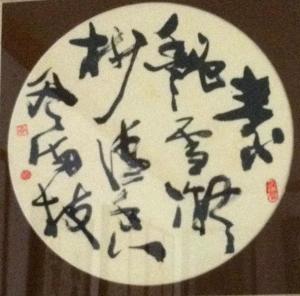 素
艷雪凝
樹清香
風滿枝